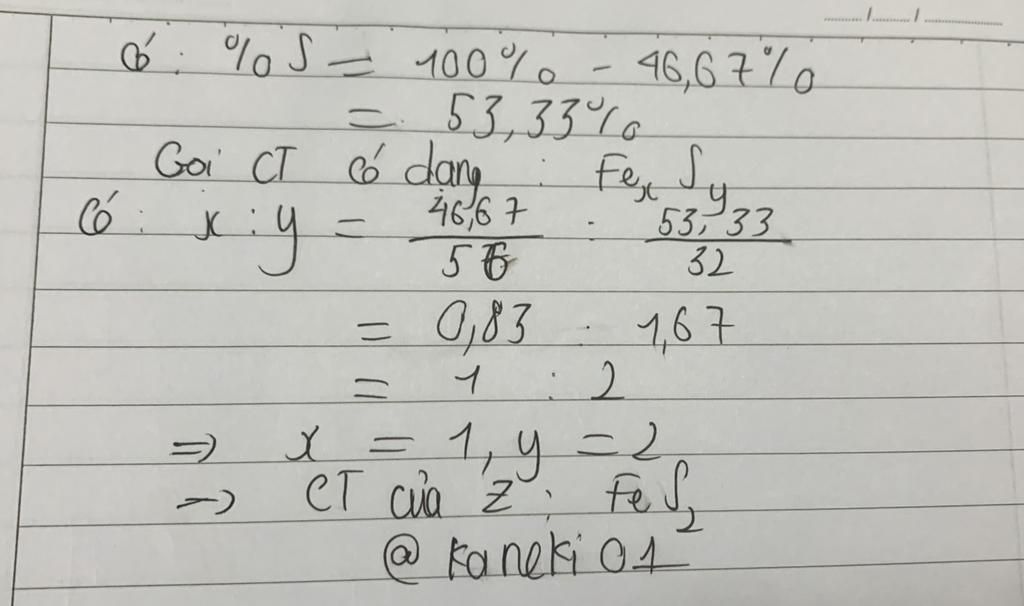 ...../...../..........
Có : %S = 100% - 46,67%
= 53,33%
Gọi CT có dạng : FexSy
Có : x : y = 46,67/56 : 53,33/32
= 0,83 : 1,67
= 1 : 2
=> x = 1, y = 2
=> CT của Z : FeS2
@kaneki01